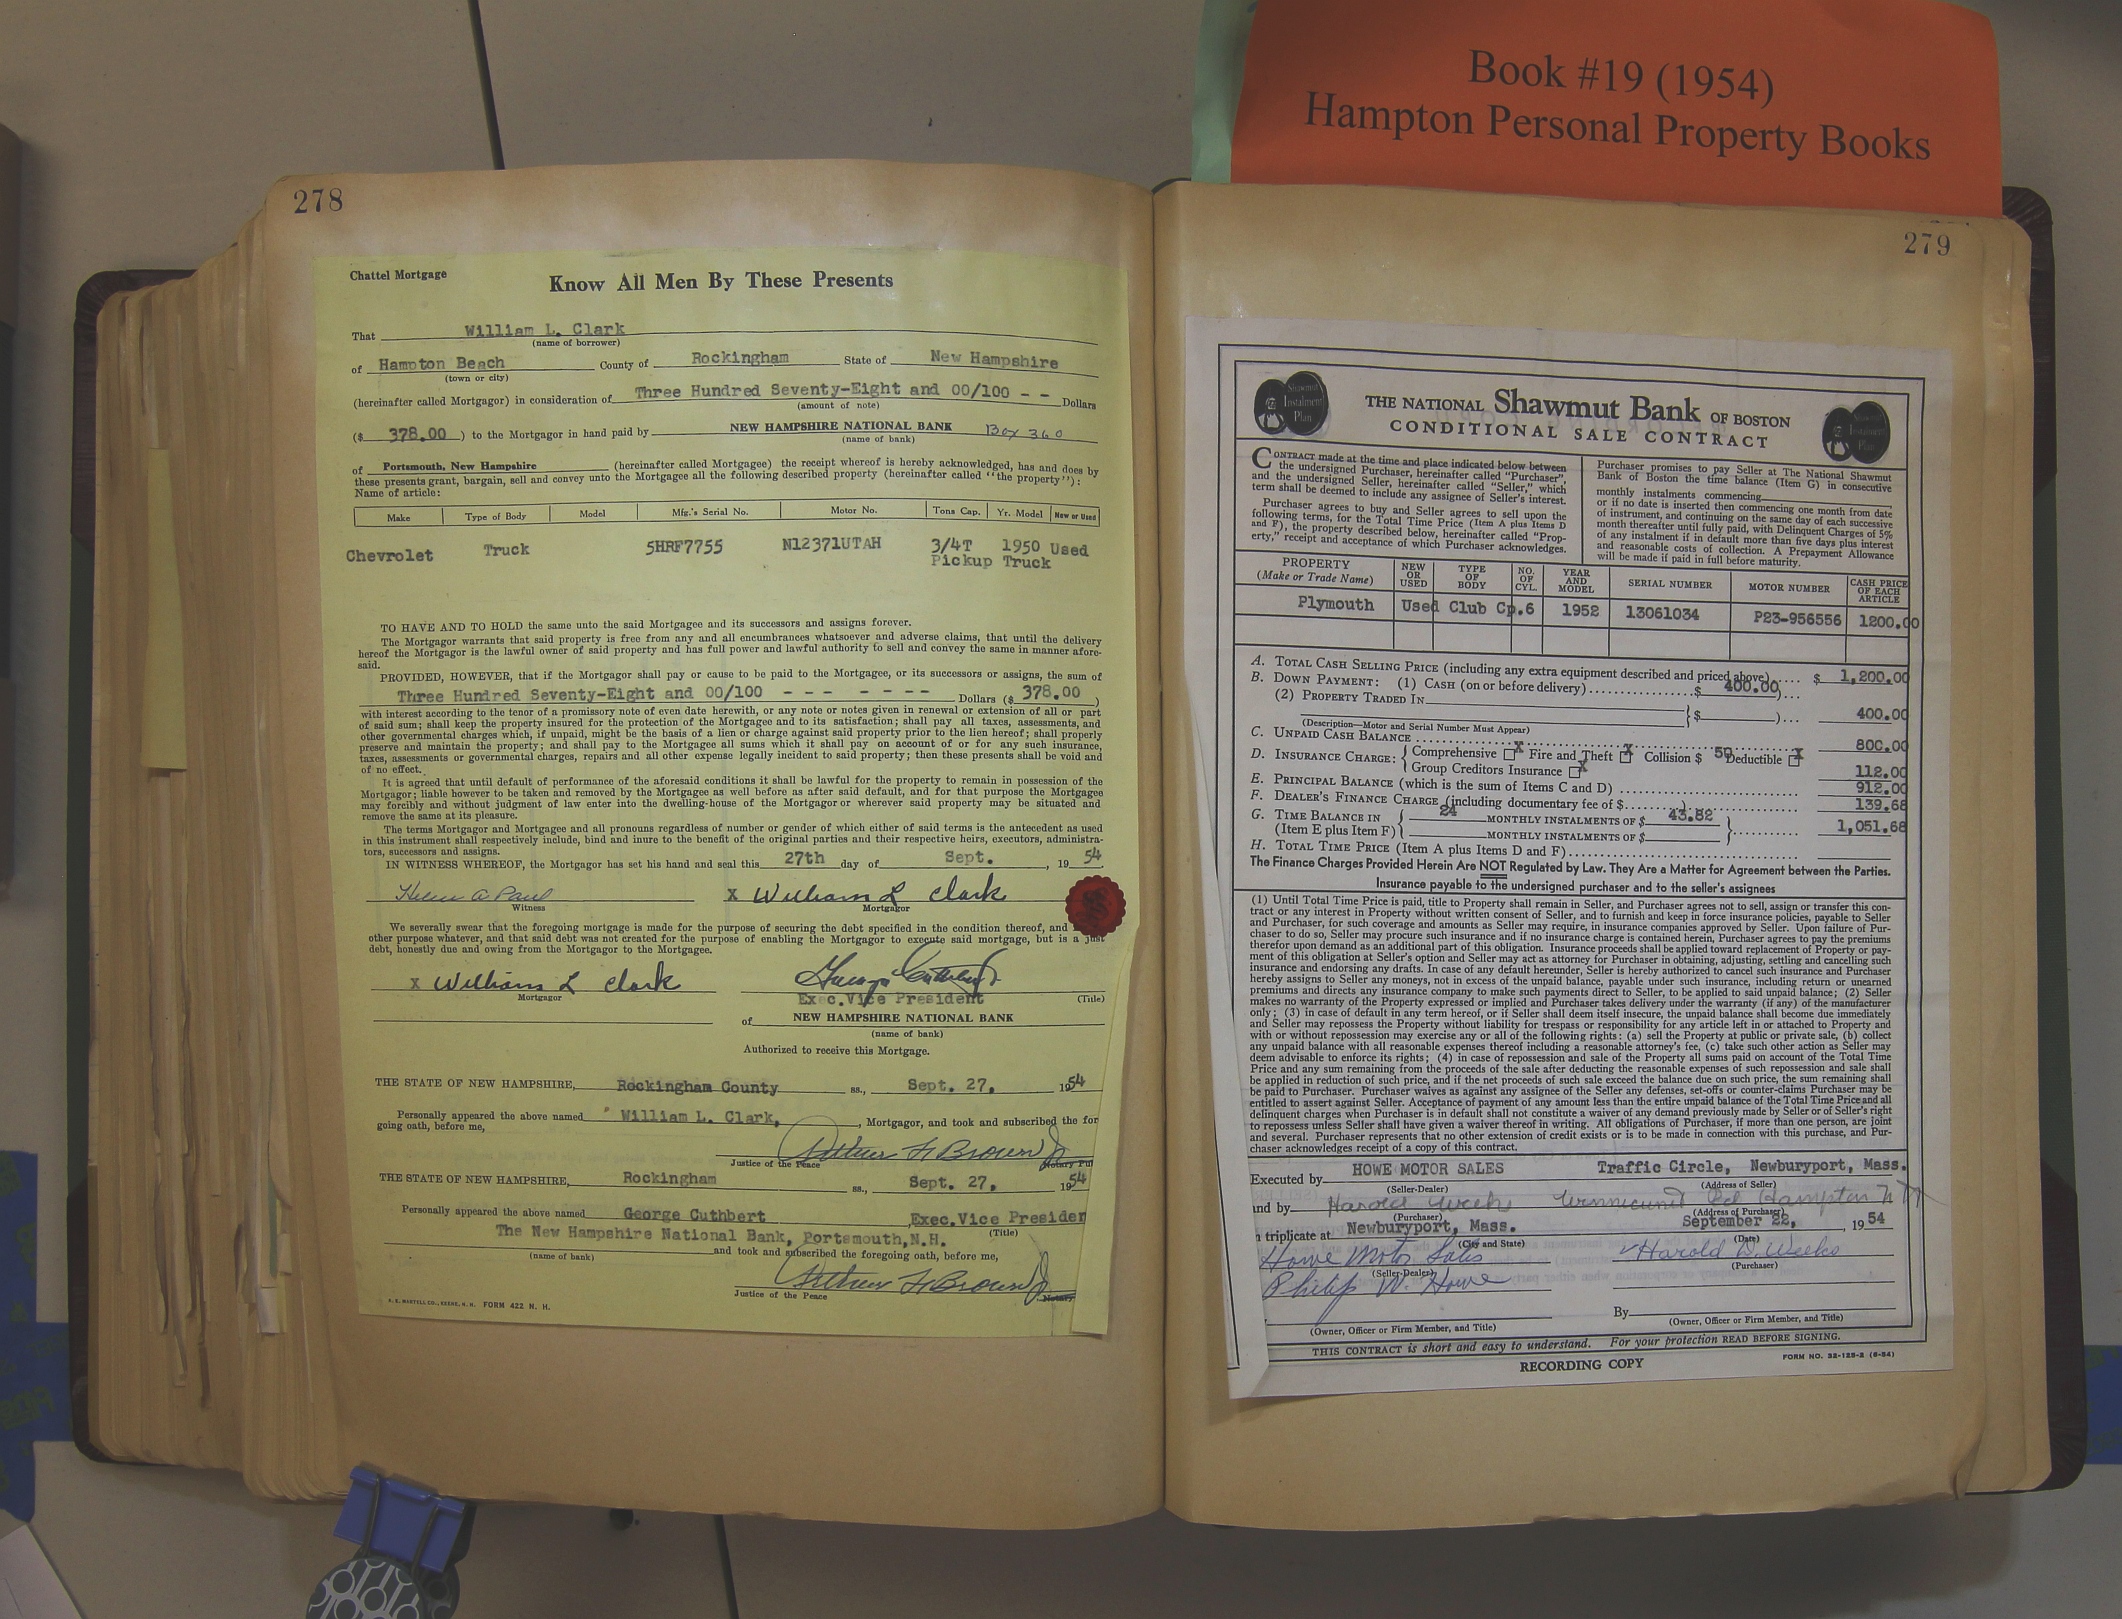 Book #19 (1954)
Hampton Personal Property Books
278
Chattel Mortgage
Know All Men By These Presents
That William L. Clark
(name of borrower)
of Hampton Beach County of Rockingham State of New Hampshire
(town or city)
(hereinafter called Mortgagor) in consideration of Three Hundred Seventy-Eight and 00/100 - - Dollars
(amount of note)
($ 378.00 ) to the Mortgagor in hand paid by NEW HAMPSHIRE NATIONAL BANK Box 360
(name of bank)
of Portsmouth, New Hampshire (hereinafter called Mortgagee) the receipt whereof is hereby acknowledged, has and does by
these presents grant, bargain, sell and convey unto the Mortgagee all the following described property (hereinafter called "the property"):
Name of article:
Make Type of Body Model Mfg.'s Serial No. Motor No. Tons Cap. Yr. Model New or Used
Chevrolet Truck 5HRF7755 N12371UTAH 3/4T 1950 Used
Pickup Truck
TO HAVE AND TO HOLD the same unto the said Mortgagee and its successors and assigns forever.
The Mortgagor warrants that said property is free from any and all encumbrances whatsoever and adverse claims, that until the delivery
hereof the Mortgagor is the lawful owner of said property and has full power and lawful authority to sell and convey the same in manner afore-
said.
PROVIDED, HOWEVER, that if the Mortgagor shall pay or cause to be paid to the Mortgagee, or its successors or assigns, the sum of
Three Hundred Seventy-Eight and 00/100 - - - - - - - Dollars ($ 378.00 )
with interest according to the tenor of a promissory note of even date herewith, or any note or notes given in renewal or extension of all or part
of said sum; shall keep the property insured for the protection of the Mortgagee and to its satisfaction; shall pay all taxes, assessments, and
other governmental charges which, if unpaid, might be the basis of a lien or charge against said property prior to the lien hereof; shall properly
preserve and maintain the property; and shall pay to the Mortgagee all sums which it shall pay on account of or for any such insurance,
taxes, assessments or governmental charges, repairs and all other expense legally incident to said property; then these presents shall be void and
of no effect.
It is agreed that until default of performance of the aforesaid conditions it shall be lawful for the property to remain in possession of the
Mortgagor; liable however to be taken and removed by the Mortgagee as well before as after said default, and for that purpose the Mortgagee
may forcibly and without judgment of law enter into the dwelling-house of the Mortgagor or wherever said property may be situated and
remove the same at its pleasure.
The terms Mortgagor and Mortgagee and all pronouns regardless of number or gender of which either of said terms is the antecedent as used
in this instrument shall respectively include, bind and inure to the benefit of the original parties and their respective heirs, executors, administra-
tors, successors and assigns.
IN WITNESS WHEREOF, the Mortgagor has set his hand and seal this 27th day of Sept. , 19 54
Helen A Paul X William L Clark
Witness Mortgagor
We severally swear that the foregoing mortgage is made for the purpose of securing the debt specified in the condition thereof, and
other purpose whatever, and that said debt was not created for the purpose of enabling the Mortgagor to execute said mortgage, but is a just
debt, honestly due and owing from the Mortgagor to the Mortgagee.
X William L Clark George Cuthbert
Mortgagor Exec.Vice President (Title)
of NEW HAMPSHIRE NATIONAL BANK
(name of bank)
Authorized to receive this Mortgage.
THE STATE OF NEW HAMPSHIRE, Rockingham County ss., Sept. 27, 1954
Personally appeared the above named William L. Clark, , Mortgagor, and took and subscribed the for
going oath, before me,
Arthur H Brown Jr
Justice of the Peace Notary Pu
THE STATE OF NEW HAMPSHIRE, Rockingham ss., Sept. 27, 1954
Personally appeared the above named George Cuthbert ,Exec.Vice Presiden
(Title)
The New Hampshire National Bank, Portsmouth,N.H.
(name of bank) and took and subscribed the foregoing oath, before me,
Arthur H Brown Jr
Justice of the Peace Notary
FORM 422 N. H.
279
Shawmut Instalment Plan
THE NATIONAL Shawmut Bank OF BOSTON
CONDITIONAL SALE CONTRACT
Shawmut Instalment Plan
CONTRACT made at the time and place indicated below between
the undersigned Purchaser, hereinafter called "Purchaser",
and the undersigned Seller, hereinafter called "Seller," which
term shall be deemed to include any assignee of Seller's interest.
Purchaser agrees to buy and Seller agrees to sell upon the
following terms, for the Total Time Price (Item A plus Items D
and F), the property described below, hereinafter called "Prop-
erty," receipt and acceptance of which Purchaser acknowledges.
Purchaser promises to pay Seller at The National Shawmut
Bank of Boston the time balance (Item G) in consecutive
monthly instalments commencing
or if no date is inserted then commencing one month from date
of instrument, and continuing on the same day of each successive
month thereafter until fully paid, with Delinquent Charges of 5%
of any instalment if in default more than five days plus interest
and reasonable costs of collection. A Prepayment Allowance
will be made if paid in full before maturity.
PROPERTY (Make or Trade Name) NEW OR USED TYPE OF BODY NO. OF CYL. YEAR AND MODEL SERIAL NUMBER MOTOR NUMBER CASH PRICE OF EACH ARTICLE
Plymouth Used Club Cp.6 1952 13061034 P23-956556 1200.00
A. TOTAL CASH SELLING PRICE (including any extra equipment described and priced above).... $ 1,200.00
B. DOWN PAYMENT: (1) CASH (on or before delivery)....................$ 400.00 )...
(2) PROPERTY TRADED IN
}$ )... 400.00
(Description—Motor and Serial Number Must Appear)
C. UNPAID CASH BALANCE ........ 800.00
D. INSURANCE CHARGE: { Comprehensive X Fire and Theft X Collision $ 50 Deductible X
Group Creditors Insurance X 112.00
E. PRINCIPAL BALANCE (which is the sum of Items C and D) ........ 912.00
F. DEALER'S FINANCE CHARGE (including documentary fee of $............).......... 139.68
G. TIME BALANCE IN { 24 MONTHLY INSTALMENTS OF $ 43.82 }.......... 1,051.68
(Item E plus Item F) MONTHLY INSTALMENTS OF $
H. TOTAL TIME PRICE (Item A plus Items D and F)........
The Finance Charges Provided Herein Are NOT Regulated by Law. They Are a Matter for Agreement between the Parties.
Insurance payable to the undersigned purchaser and to the seller's assignees
(1) Until Total Time Price is paid, title to Property shall remain in Seller, and Purchaser agrees not to sell, assign or transfer this con-
tract or any interest in Property without written consent of Seller, and to furnish and keep in force insurance policies, payable to Seller
and Purchaser, for such coverage and amounts as Seller may require, in insurance companies approved by Seller. Upon failure of Pur-
chaser to do so, Seller may procure such insurance and if no insurance charge is contained herein, Purchaser agrees to pay the premiums
therefor upon demand as an additional part of this obligation. Insurance proceeds shall be applied toward replacement of Property or pay-
ment of this obligation at Seller's option and Seller may act as attorney for Purchaser in obtaining, adjusting, settling and cancelling such
insurance and endorsing any drafts. In case of any default hereunder, Seller is hereby authorized to cancel such insurance and Purchaser
hereby assigns to Seller any moneys, not in excess of the unpaid balance, payable under such insurance, including return or unearned
premiums and directs any insurance company to make such payments direct to Seller, to be applied to said unpaid balance; (2) Seller
makes no warranty of the Property expressed or implied and Purchaser takes delivery under the warranty (if any) of the manufacturer
only; (3) in case of default in any term hereof, or if Seller shall deem itself insecure, the unpaid balance shall become due immediately
and Seller may repossess the Property without liability for trespass or responsibility for any article left in or attached to Property and
with or without repossession may exercise any or all of the following rights: (a) sell the Property at public or private sale, (b) collect
any unpaid balance with all reasonable expenses thereof including a reasonable attorney's fee, (c) take such other action as Seller may
deem advisable to enforce its rights; (4) in case of repossession and sale of the Property all sums paid on account of the Total Time
Price and any sum remaining from the proceeds of the sale after deducting the reasonable expenses of such repossession and sale shall
be applied in reduction of such price, and if the net proceeds of such sale exceed the balance due on such price, the sum remaining shall
be paid to Purchaser. Purchaser waives as against any assignee of the Seller any defenses, set-offs or counter-claims Purchaser may be
entitled to assert against Seller. Acceptance of payment of any amount less than the entire unpaid balance of the Total Time Price and all
delinquent charges when Purchaser is in default shall not constitute a waiver of any demand previously made by Seller or of Seller's right
to repossess unless Seller shall have given a waiver thereof in writing. All obligations of Purchaser, if more than one person, are joint
and several. Purchaser represents that no other extension of credit exists or is to be made in connection with this purchase, and Pur-
chaser acknowledges receipt of a copy of this contract.
Executed by HOWE MOTOR SALES Traffic Circle, Newburyport, Mass.
(Seller-Dealer) (Address of Seller)
and by Harold Weeks Winnicunnet Rd Hampton N H
(Purchaser) (Address of Purchaser)
n triplicate at Newburyport, Mass. September 22, , 19 54
(City and State) (Date)
Howe Motor Sales Harold D. Weeks
(Seller-Dealer) (Purchaser)
Philip W. Howe
By
(Owner, Officer or Firm Member, and Title) (Owner, Officer or Firm Member, and Title)
THIS CONTRACT is short and easy to understand. For your protection READ BEFORE SIGNING.
RECORDING COPY FORM NO. 32-125-2 (6-54)